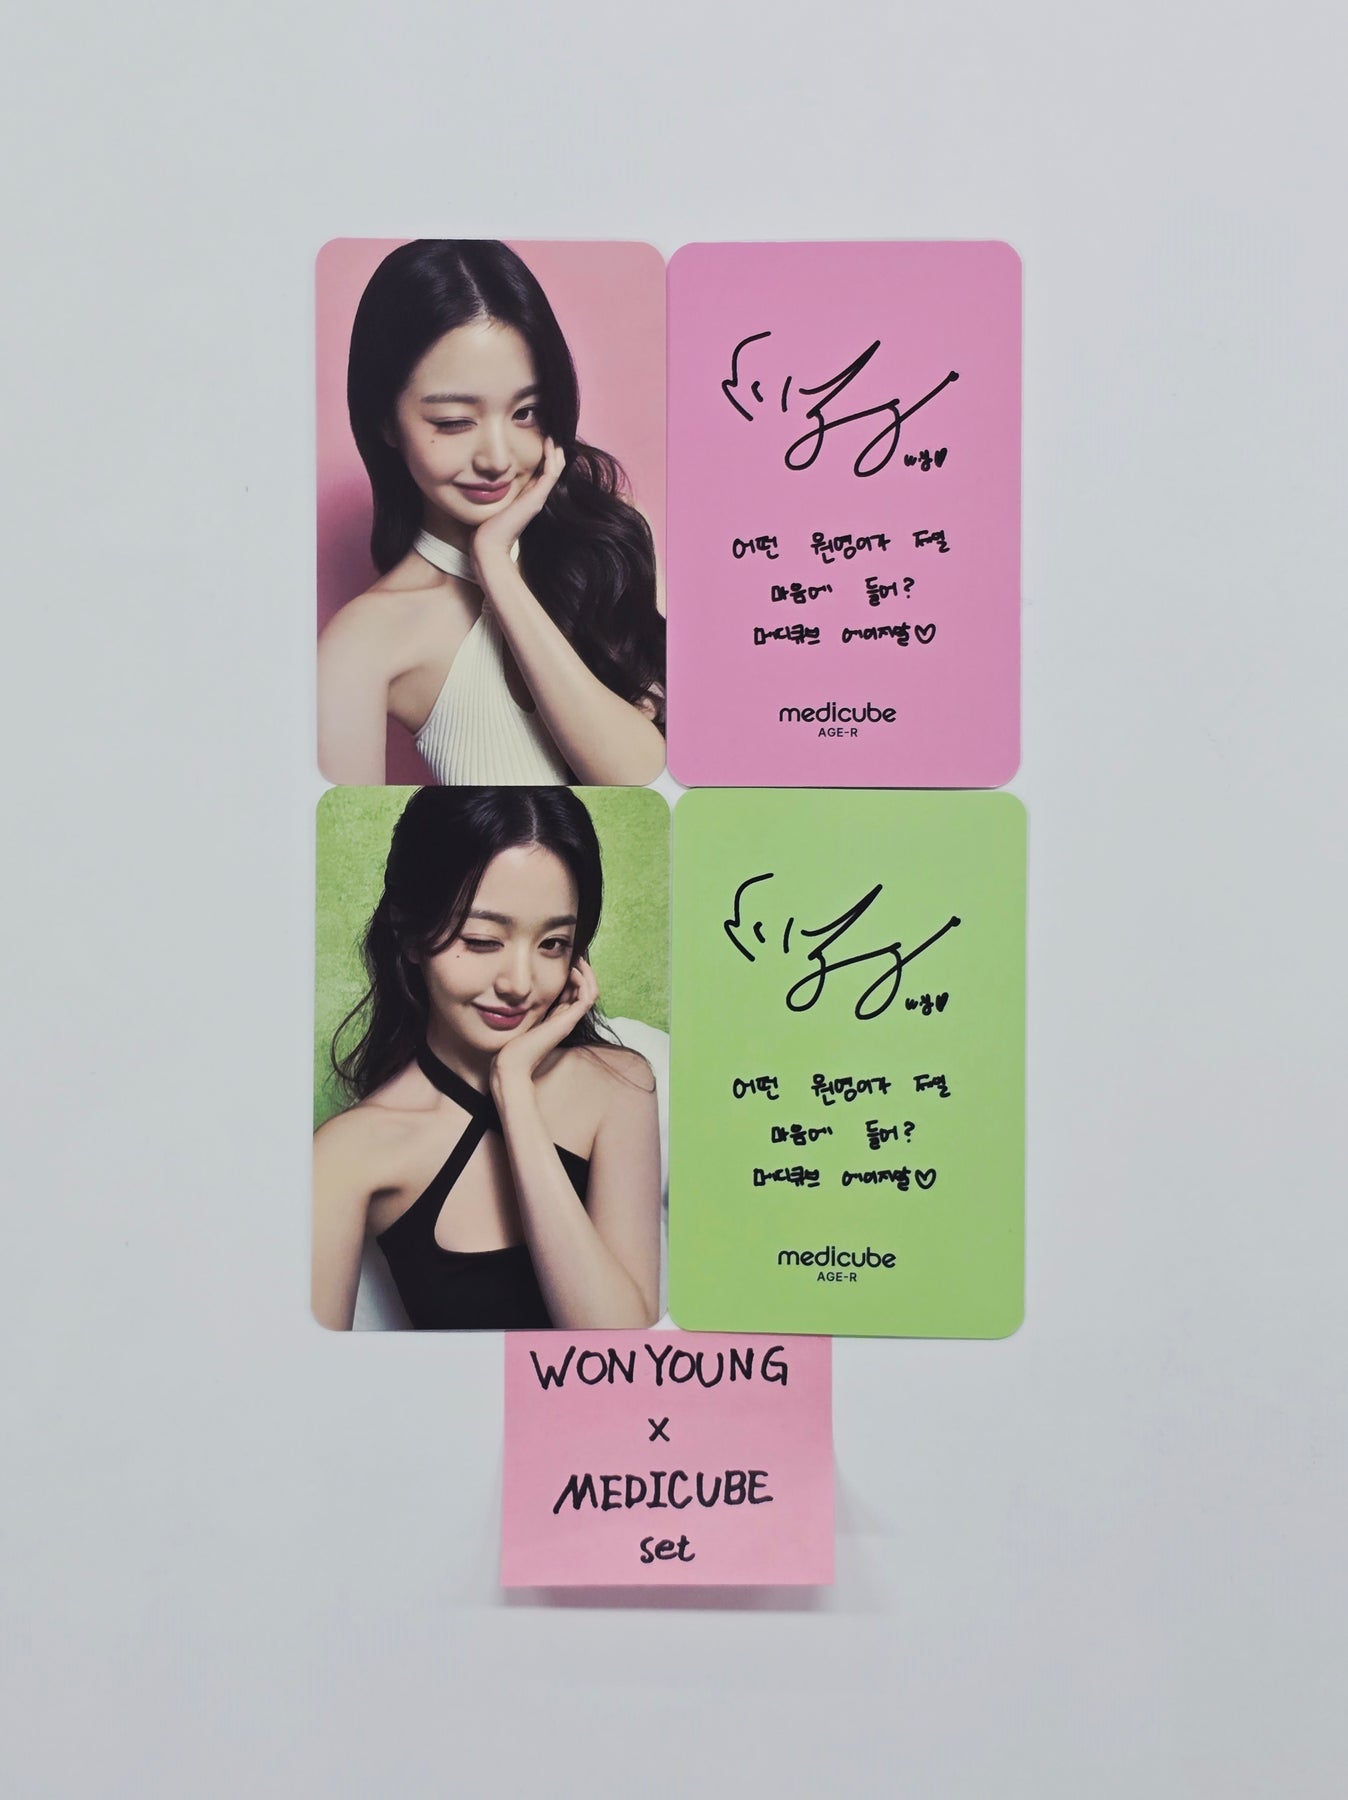 W쀼♥
어떤 원영이가 제일
마음에 들어?
메디큐브 에이지알♡
medicube
AGE-R
어떤 원영이가 제일
마음에 들어?
메디큐브 에이지알♡
medicube
AGE-R
WONYOUNG
x
MEDICUBE
set